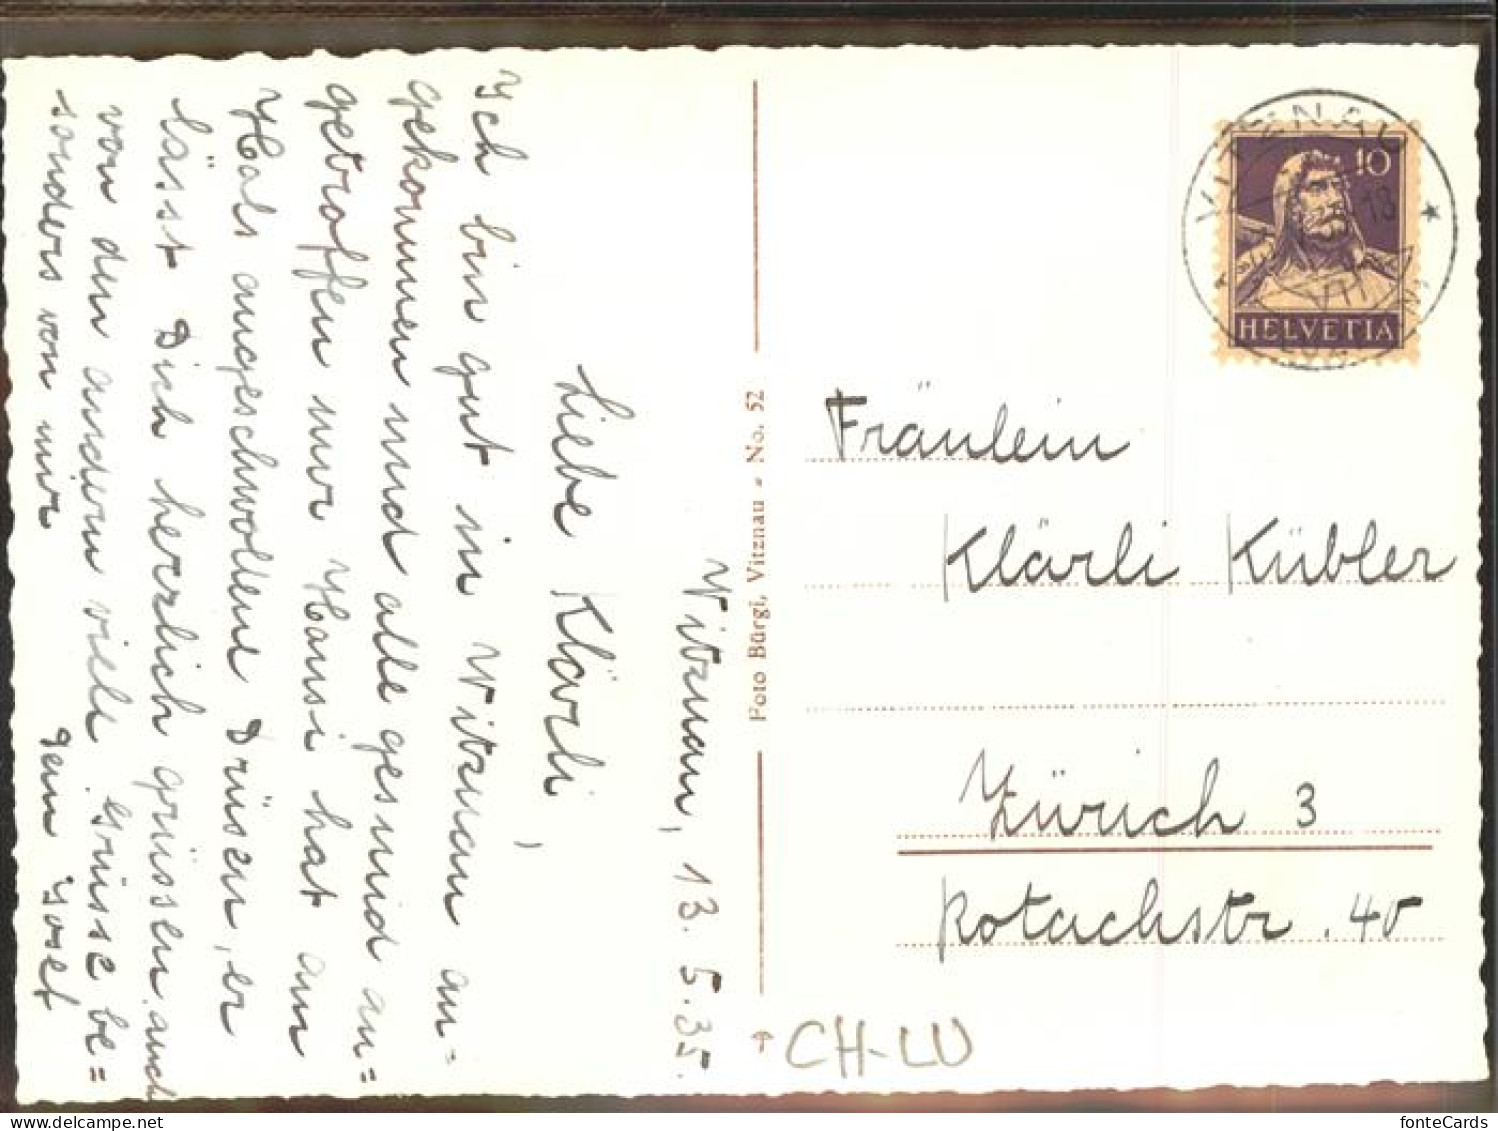 Vitznau, 13. 5. 35.
Liebe Klärli,
Ich bin gut in Vitznau an=
gekommen und alle gesund an=
getroffen nur Hansi hat am
Hals angeschwollene Drüsen, er
lässt Dich herzlich grüssen, auch
von den andern viele Grüsse be=
sonders von mir
Dein Josef
Foto Bürgi, Vitznau - No. 52
VITZNAU
18
VII
10
HELVETIA
Fräulein
Klärli Kübler
Zürich 3
Rotachstr. 40
CH-LU
www.delcampe.net
fonteCards